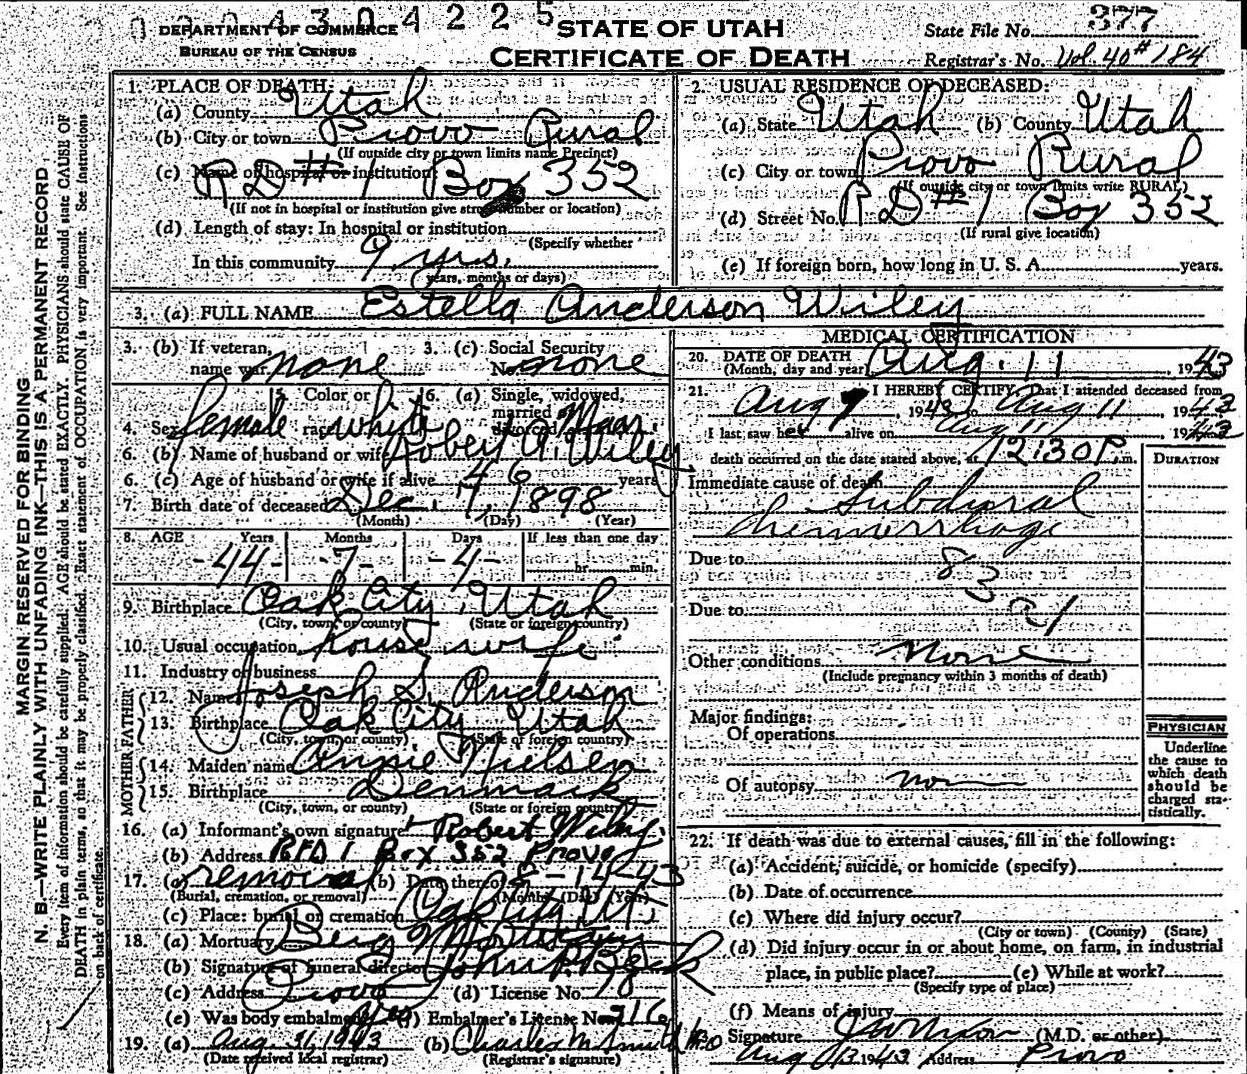 0 2 0 4 3 0 4 2 2 5
DEPARTMENT OF COMMERCE
BUREAU OF THE CENSUS
STATE OF UTAH
CERTIFICATE OF DEATH
State File No. 377
Registrar's No. Vol. 40 # 184
MARGIN RESERVED FOR BINDING
N. B.—WRITE PLAINLY WITH UNFADING INK—THIS IS A PERMANENT RECORD
Every item of information should be carefully supplied. AGE should be stated EXACTLY. PHYSICIANS should state CAUSE OF
DEATH in plain terms, so that it may be properly classified. Exact statement of OCCUPATION is very important. See instructions
on back of certificate.
1. PLACE OF DEATH:
(a) County Utah
(b) City or town Provo Rural
(If outside city or town limits name Precinct)
(c) Name of hospital or institution: R D # 1 Box 352
(If not in hospital or institution give street number or location)
(d) Length of stay: In hospital or institution
(Specify whether
In this community 9 yrs.
years, months or days)
2. USUAL RESIDENCE OF DECEASED:
(a) State Utah (b) County Utah
(c) City or town Provo Rural
(If outside city or town limits write RURAL)
(d) Street No. R D # 1 Box 352
(If rural give location)
(e) If foreign born, how long in U. S. A. years.
3. (a) FULL NAME Estella Anderson Wiley
3. (b) If veteran, name war none
3. (c) Social Security No. none
4. Sex female
5. Color or race white
6. (a) Single, widowed, married or Marr.
6. (b) Name of husband or wife Robert A. Wiley
6. (c) Age of husband or wife if alive 46 years
7. Birth date of deceased Dec. 7, 1898
(Month) (Day) (Year)
8. AGE Years Months Days If less than one day
-44- -7- -4- hr. min.
9. Birthplace Oak City, Utah
(City, town, or county) (State or foreign country)
10. Usual occupation house wife
11. Industry or business
FATHER
12. Name Joseph S. Anderson
13. Birthplace Oak City Utah
(City, town or county) (State or foreign country)
MOTHER
14. Maiden name Annie Nielsen
15. Birthplace Denmark
(City, town, or county) (State or foreign country)
16. (a) Informant's own signature Robert Wiley
(b) Address RFD 1 Box 352 Provo
17. (a) removal (b) Date thereof 8-14-43
(Burial, cremation, or removal) (Month) (Day) (Year)
(c) Place: burial or cremation Oak City, Ut.
18. (a) Mortuary Berg Mortuary
(b) Signature of funeral director
(c) Address Provo (d) License No. 78
(e) Was body embalmed yes (f) Embalmer's License No. 216
19. (a) Aug. 31, 1943 (b) Charles M Smith M.D
(Date received local registrar) (Registrar's signature)
MEDICAL CERTIFICATION
20. DATE OF DEATH Aug. 11, 1943
(Month, day and year)
21. I HEREBY CERTIFY, That I attended deceased from
Aug 9, 1943 to Aug 11, 1943
I last saw her alive on Aug 11, 1943
death occurred on the date stated above, at 12:30 P. m.
DURATION
Immediate cause of death Subdural
hemorrhage
Due to 83
Due to
Other conditions None
(Include pregnancy within 3 months of death)
Major findings:
Of operations
Of autopsy
PHYSICIAN
Underline
the cause to
which death
should be
charged sta-
tistically.
22. If death was due to external causes, fill in the following:
(a) Accident, suicide, or homicide (specify)
(b) Date of occurrence
(c) Where did injury occur?
(City or town) (County) (State)
(d) Did injury occur in or about home, on farm, in industrial
place, in public place? (e) While at work?
(Specify type of place)
(f) Means of injury
Signature J W Nixon (M.D. or other)
Aug 13 1943 Address Provo